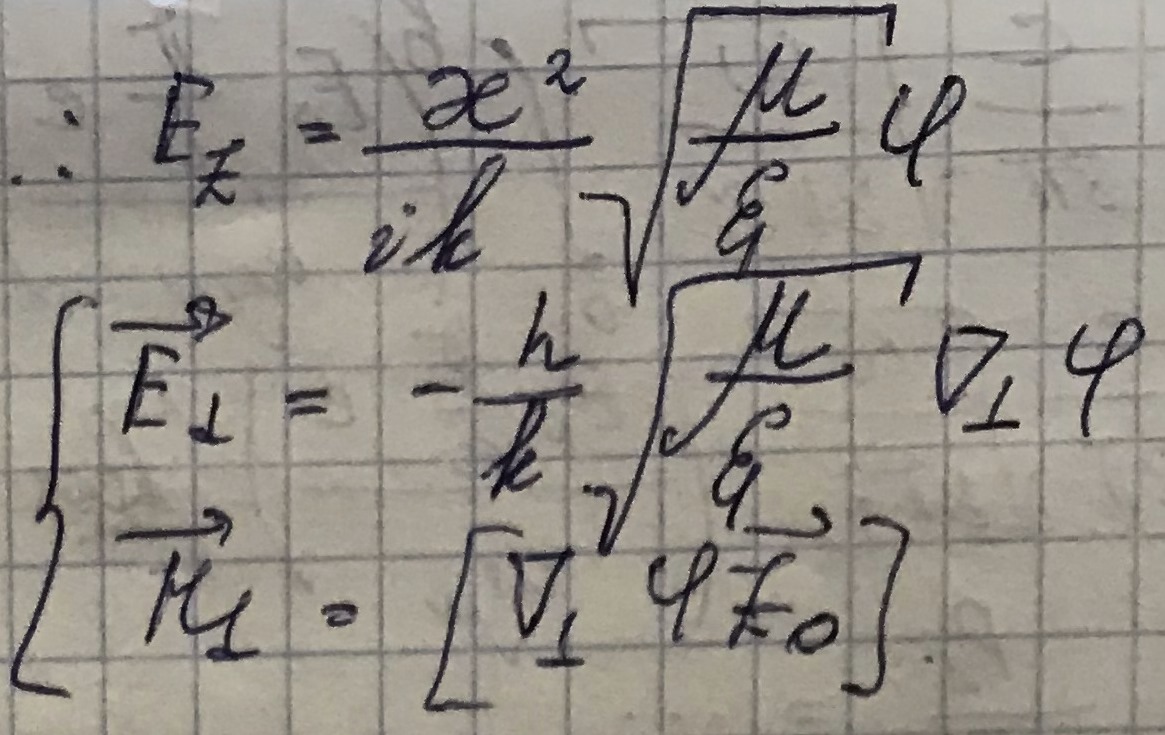 ∴ E_z = \frac{æ^2}{ik} \sqrt{\frac{μ}{ε}} φ
\vec{E}_⊥ = -\frac{h}{k} \sqrt{\frac{μ}{ε}} ∇_⊥ φ
\vec{H}_⊥ = [∇_⊥ φ \vec{z}_0].